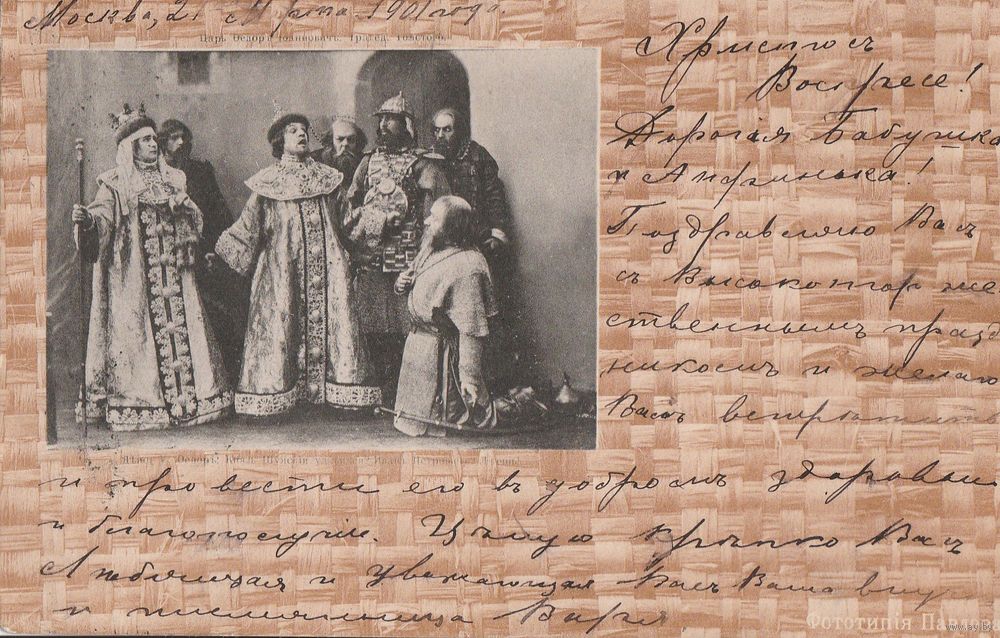 Москва, 21 Марта 1901 года.
Царь Ѳедоръ Іоанновичъ. Траг. гр. Толстого.
Христосъ
Воскресе!
Дорогая Бабушка
и Анфинька!
Поздравляю Васъ
съ Высокоторже-
ственнымъ празд
никомъ и желаю
Вамъ встрѣтить
Ѳедоръ: Князь Шуйскій
и провести его въ добромъ здоровьи
и благополучіи. Цѣлую крѣпко Васъ
Любящая и уважающая Васъ Ваша вну
и племянница Варя
Фототипія Павлова